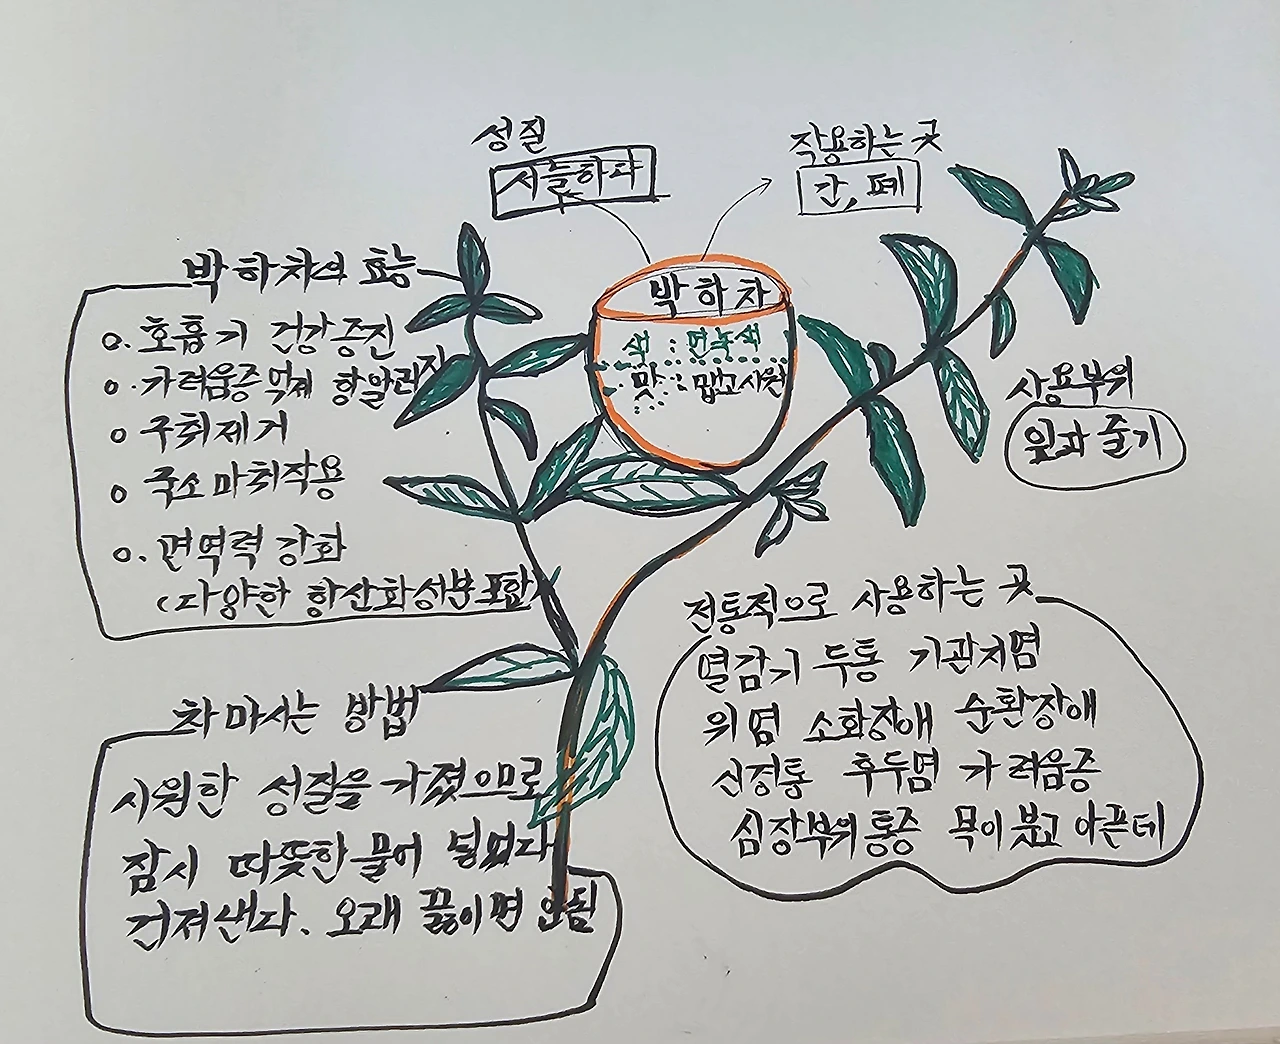 성질
서늘하다
작용하는 곳
간, 폐
박하차
색 : 연녹색
맛 : 맵고시원
박하차의 효능
o. 호흡기 건강증진
o. 가려움증억제 항알러지
o 구취제거
o 국소마취작용
o. 면역력 강화
(다양한 항산화성분포함)
사용부위
잎과 줄기
전통적으로 사용하는 곳
열감기 두통 기관지염
위염 소화장애 순환장애
신경통 후두염 가려움증
심장부위통증 목이붓고 아픈데
차 마시는 방법
시원한 성질을 가졌으므로
잠시 따뜻한 물에 넣었다
건져낸다. 오래 끓이면 안됨